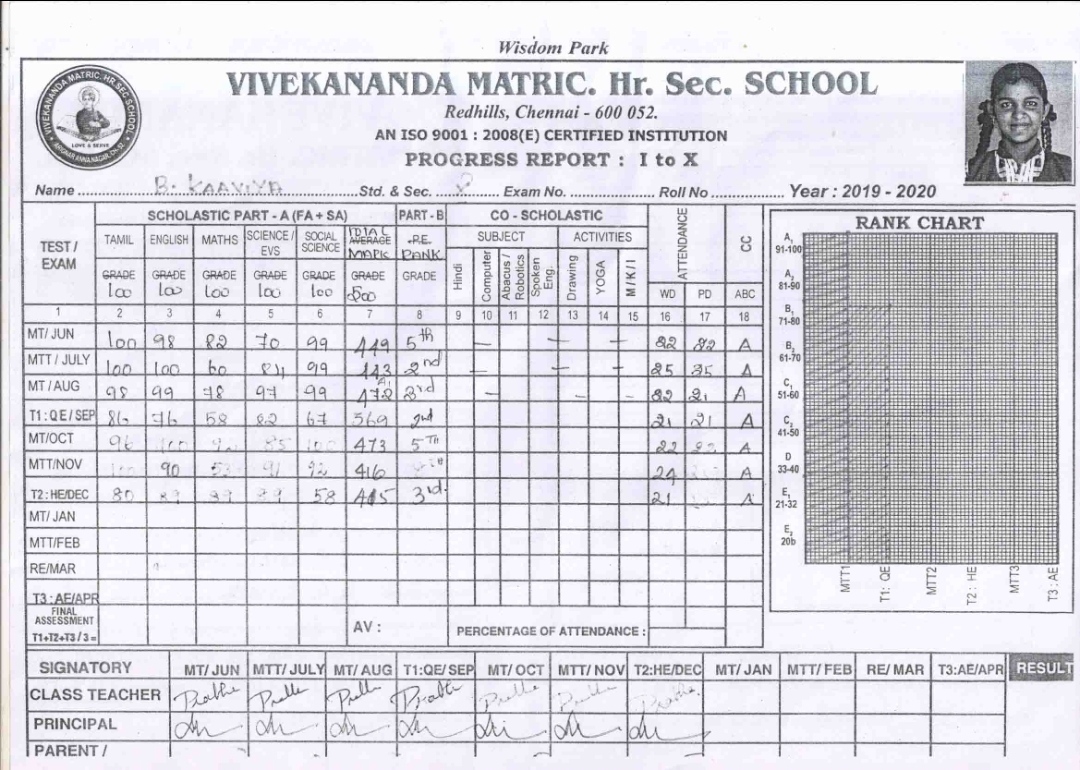 Wisdom Park
VIVEKANANDA MATRIC. Hr. Sec. SCHOOL
Redhills, Chennai - 600 052.
AN ISO 9001 : 2008(E) CERTIFIED INSTITUTION
PROGRESS REPORT : I to X
VIVEKANANDA MATRIC. HR. SEC. SCHOOL
LOVE & SERVE
Name B. KAAVIYA Std. & Sec. X Exam No. Roll No Year : 2019 - 2020
TEST / EXAM SCHOLASTIC PART - A (FA + SA) PART - B CO - SCHOLASTIC ATTENDANCE CC
TAMIL ENGLISH MATHS SCIENCE / EVS SOCIAL SCIENCE TOTAL AVERAGE MARK P.E. RANK SUBJECT ACTIVITIES
Hindi Computer Abacus / Robotics Spoken Eng. Drawing YOGA M/K/I
GRADE GRADE GRADE GRADE GRADE GRADE GRADE WD PD ABC
100 100 100 100 100 500
1 2 3 4 5 6 7 8 9 10 11 12 13 14 15 16 17 18
MT/ JUN 100 98 82 70 99 449 5th A
MTT / JULY 100 100 60 84 99 443 2nd A
MT / AUG 98 99 78 97 99 3rd 21 A
T1: QE / SEP 86 76 58 82 67 369 2nd 21 21 A
MT/OCT 96 100 85 100 473 5TH 22 A
MTT/NOV 90 53 91 92 416 24 A
T2: HE/DEC 80 89 89 89 58 3rd. 21 A
MT/ JAN
MTT/FEB
RE/MAR
T3 : AE/APR
FINAL ASSESSMENT
T1+T2+T3 / 3 = AV : PERCENTAGE OF ATTENDANCE :
RANK CHART
A1 91-100
A2 81-90
B1 71-80
B2 61-70
C1 51-60
C2 41-50
D 33-40
E1 21-32
E2 20b
MTT1 T1: QE MTT2 T2 : HE MTT3 T3 : AE
SIGNATORY MT/ JUN MTT/ JULY MT/ AUG T1:QE/ SEP MT/ OCT MTT/ NOV T2:HE/DEC MT/ JAN MTT/ FEB RE/ MAR T3:AE/APR RESULT
CLASS TEACHER
PRINCIPAL
PARENT /